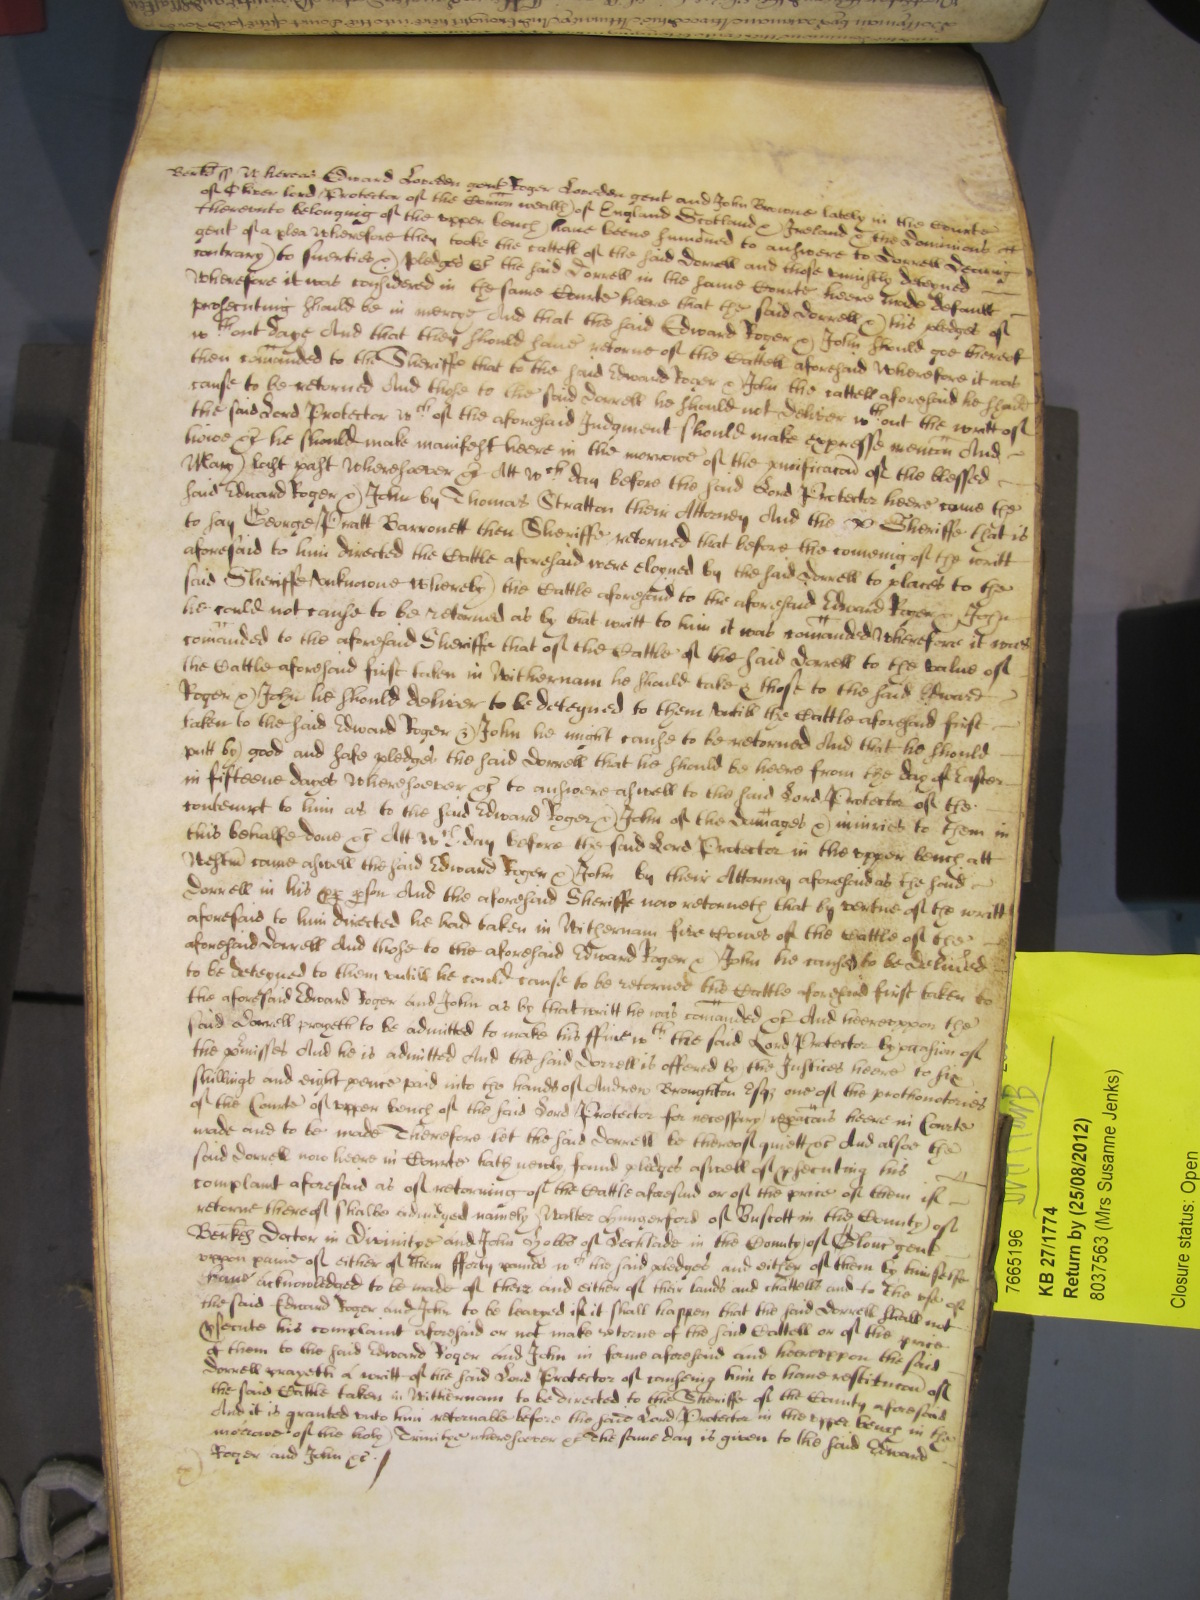 Berks ss Whereas Edward Loveden gent Roger Loveden gent and John Browne lately in the Courte
of Oliver lord Protector of the Comon wealth of England Scotland & Ireland & the Dominions
thereunto belonging of the upper bench have beene sumoned to answere to Dorrell
gent of a plea Wherefore they tooke the cattell of the said Dorrell and those uniustly deteyned
contrary to suerties & pledges &c the said Dorrell in the same Courte heere made default
Wherefore it was considered in the same Courte heere that the said Dorrell & his pledges of
prosecuting should be in mercye And that the said Edward Roger & John should goe thereof
wthout daye And that they should have retorne of the Cattell aforesaid Wherefore it was
then comanded to the Sheriffe that to the said Edward Roger & John the cattell aforesaid he should
cause to be returned And those to the said Dorrell he should not deliver wthout the writt of
the said Lord Protector wch of the aforesaid Judgment should make expresse mencon And
howe &c he should make manifest heere in the morrowe of the purificacon of the blessed
Mary last past Wheresoever &c Att wch day before the said Lord Protector heere came the
said Edward Roger & John by Thomas Stratton their Attorney And the Sheriffe that is
to say George Pratt Barronett then Sheriffe returned that before the comeing of the writt
aforesaid to him directed the Cattle aforesaid were eloyned by the said Dorrell to places to the
said Sheriffe unknowne Whereby the Cattle aforesaid to the aforesaid Edward Roger & John
he could not cause to be returned as by that writt to him it was comanded Wherefore it was
comanded to the aforesaid Sheriffe that of the Cattle of the said Dorrell to the value of
the Cattle aforesaid first taken in Withernam he should take & those to the said Edward
Roger & John he should deliver to be deteyned to them untill the Cattle aforesaid first
taken to the said Edward Roger & John he might cause to be returned And that he should
putt by good and safe pledges the said Dorrell that he should be heere from the day of Easter
in fifteene dayes Wheresoever &c to answere aswell to the said Lord Protector of the
contempt to him as to the said Edward Roger & John of the damages & iniuries to them in
this behalfe done &c Att wch day before the said Lord Protector in the upper bench att
Westm came aswell the said Edward Roger & John by their Attorney aforesaid as the said
Dorrell in his pson And the aforesaid Sheriffe now retorneth that by vertue of the writt
aforesaid to him directed he had taken in Withernam five Cowes of the Cattle of the
aforesaid Dorrell And those to the aforesaid Edward Roger & John he caused to be delivered
to be deteyned to them untill he could cause to be returned the Cattle aforesaid first taken to
the aforesaid Edward Roger and John as by that writt he was comanded &c And heereuppon the
said Dorrell prayeth to be admitted to make his ffine wth the said Lord Protector by occasion of
the pmisses And he is admitted And the said Dorrell is offered by the Justices heere to six
shillings and eight pence paid into the hands of Andrew Broughton Esqr one of the prothonotories
of the Courte of upper bench of the said Lord Protector for necessary repacons heere in Courte
made and to be made Therefore let the said Dorrell be thereof quiett &c And alsoe the
said Dorrell now heere in Courte hath newly found pledges aswell of psecuting his
complaint aforesaid as of retorning of the Cattle aforesaid or of the price of them if
retorne thereof shalbe adiudged namely Walter Hungerford of Buscott in the County of
Berks Doctor in Divinitye and John Hobbs of Lechlade in the County of Glouc gent
uppon paine of either of them fforty pounds wch the said pledges and either of them by himselfe
have acknowledged to be made of their and either of their lands and chattells and to the use of
the said Edward Roger and John to be leavyed if it shall happen that the said Dorrell shall not
psecute his complaint aforesaid or not make retorne of the said Cattell or of the price
of them to the said Edward Roger and John in forme aforesaid and heereuppon the said
Dorrell prayeth a writt of the said Lord Protector of causeing him to have restitucon of
the said Cattle taken in Withernam to be directed to the Sheriffe of the County aforesaid
And it is granted unto him retornable before the said Lord Protector in the upper bench in the
morrowe of the holy Trinitye wheresoever &c The same day is given to the said Edward
Roger and John &c
7665196
KB 27/1774
Return by (25/08/2012)
8037563 (Mrs Susanne Jenks)
Closure status: Open